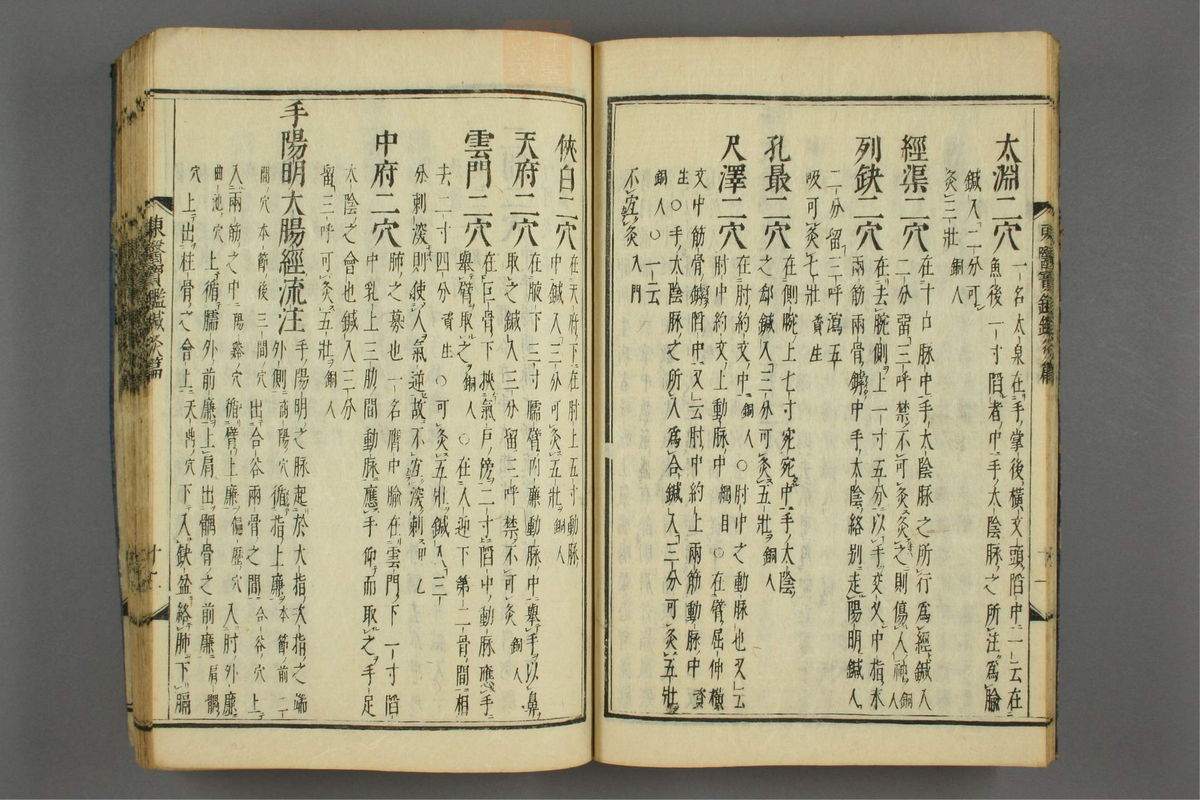 太淵二穴一名太泉在手掌後橫文頭陷中一云在
魚後一寸陷者中手太陰脉之所注爲腧
鍼入二分可
灸三壯銅人
經渠二穴在寸口脉中手太陰脉之所行爲經鍼入
二分留三呼禁不可灸灸之則傷人神銅人
列缺二穴在去腕側上一寸五分以手交叉中指末
兩筋兩骨罅中手太陰絡別走陽明鍼入
二分留三呼瀉五
吸可灸七壯資生
孔最二穴在側腕上七寸宛宛中手太陰
之郄鍼入三分可灸五壯銅人
尺澤二穴在肘約文中銅人○肘中之動脉也又云
肘中約文上動脉中綱目○在臂屈伸橫
文中筋骨罅陷中又云肘中約上兩筋動脉中資
生○手太陰脉之所入爲合鍼入三分可灸五壯
銅人○一云
不宜灸入門
俠白二穴在天府下在肘上五寸動脉
中鍼入三分可灸五壯銅人
天府二穴在腋下三寸臑臂內廉動脉中擧手以鼻
取之鍼入三分留三呼禁不可灸銅人
雲門二穴在巨骨下挾氣戶傍二寸陷中動脉應手
擧臂取之銅人○在人迎下第二骨間相
去二寸四分資生○可灸五壯鍼入三
分刺深則使人氣逆故不宜深刺甲乙
中府二穴肺之募也一名膺中腧在雲門下一寸陷
中乳上三肋間動脉應手仰而取之手足
太陰之會也鍼入三分
留三呼可灸五壯銅人
手陽明大腸經流注手陽明之脉起於大指次指之端
外側商陽穴循指上廉本節前二
間穴本節後三間穴出合谷兩骨之間合谷穴上
入兩筋之中陽谿穴循臂上廉偏歷穴入肘外廉
曲池穴上循臑外前廉上肩出髃骨之前廉肩髃
穴上出柱骨之會上天鼎穴下入缺盆絡肺下膈
東醫寶鑑鍼灸篇